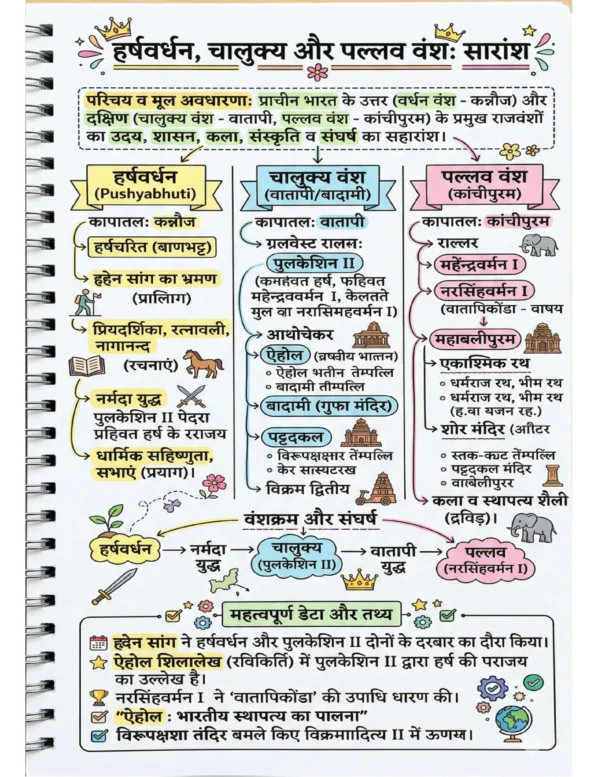 हर्षवर्धन, चालुक्य और पल्लव वंशः सारांश
परिचय व मूल अवधारणाः प्राचीन भारत के उत्तर (वर्धन वंश - कन्नौज) और
दक्षिण (चालुक्य वंश - वातापी, पल्लव वंश - कांचीपुरम) के प्रमुख राजवंशों
का उदय, शासन, कला, संस्कृति व संघर्ष का सहारांश।
हर्षवर्धन
(Pushyabhuti)
कापातलः कन्नौज
हर्षचरित (बाणभट्ट)
हहेन सांग का भ्रमण
(प्रालिाग)
प्रियदर्शिका, रत्नावली,
नागानन्द
(रचनाएं)
नर्मदा युद्ध
पुलकेशिन II पेदरा
प्रहिवत हर्ष के रराजय
धार्मिक सहिष्णुता,
सभाएं (प्रयाग)।
चालुक्य वंश
(वातापी/बादामी)
कापातलः वातापी
ग्रलवेस्ट रालमः
पुलकेशिन II
(कमहवत हर्ष, फहिवत
महेन्द्रववर्मन I, कैलतते
मुल बा नरासिमहवर्मन I)
आथोचेकर
ऐहोल (व्रष्कीय भातन)
ऐहोल भतीन तेम्पल्लि
बादामी तीम्पल्लि
बादामी (गुफा मंदिर)
पट्टदकल
विरूपक्षक्षार तेंम्पल्लि
केर सास्यटरख
विक्रम द्वितीय
पल्लव वंश
(कांचीपुरम)
कापातलः कांचीपुरम
राल्लर
महेंन्द्रवर्मन I
नरसिंहवर्मन I
(वातापिकोंडा - वाषय
महाबलीपुरम
एकाश्मिक रथ
धर्मराज रथ, भीम रथ
धर्मराज रथ, भीम रथ
(ह.वा यजन रह.)
शोर मंदिर (आीटर
स्तक-क्यट तेंम्पल्लि
पट्टदकल मंदिर
वाबेलीपुरर
कला व स्थापत्य शैली
(द्रविड़)।
वंशक्रम और संघर्ष
हर्षवर्धन → नर्मदा युद्ध → चालुक्य (पुलकेशिन II) → वातापी युद्ध → पल्लव (नरसिंहवर्मन I)
महत्वपूर्ण डेटा और तथ्य
ह्वेन सांग ने हर्षवर्धन और पुलकेशिन II दोनों के दरबार का दौरा किया।
ऐहोल शिलालेख (रविकिर्ति) में पुलकेशिन II द्वारा हर्ष की पराजय
का उल्लेख है।
नरसिंहवर्मन I ने 'वातापिकोंडा' की उपाधि धारण की।
"ऐहोल : भारतीय स्थापत्य का पालना"
विरूपक्षशा तंदिर बमले किए विक्रमाादित्य II में ऊणख।